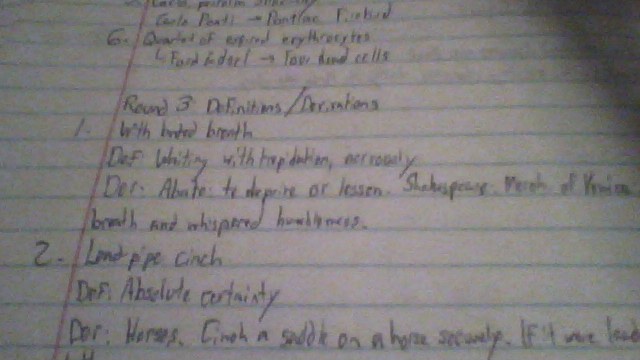 Carlo Ponti → Pontiac Firebird
6. Quartet of expired erythrocytes
↳ Ford Edsel → Four dead cells
Round 3 Definitions/Derivations
1. With bated breath
Def: Waiting with trepidation, nervously
Der: Abate: to deprive or lessen. Shakespeare. Merch of Venice
breath and whispered humbleness.
2. Lead pipe cinch
Def: Absolute certainty
Der: Horses. Cinch a saddle on a horse securely. If it were lead